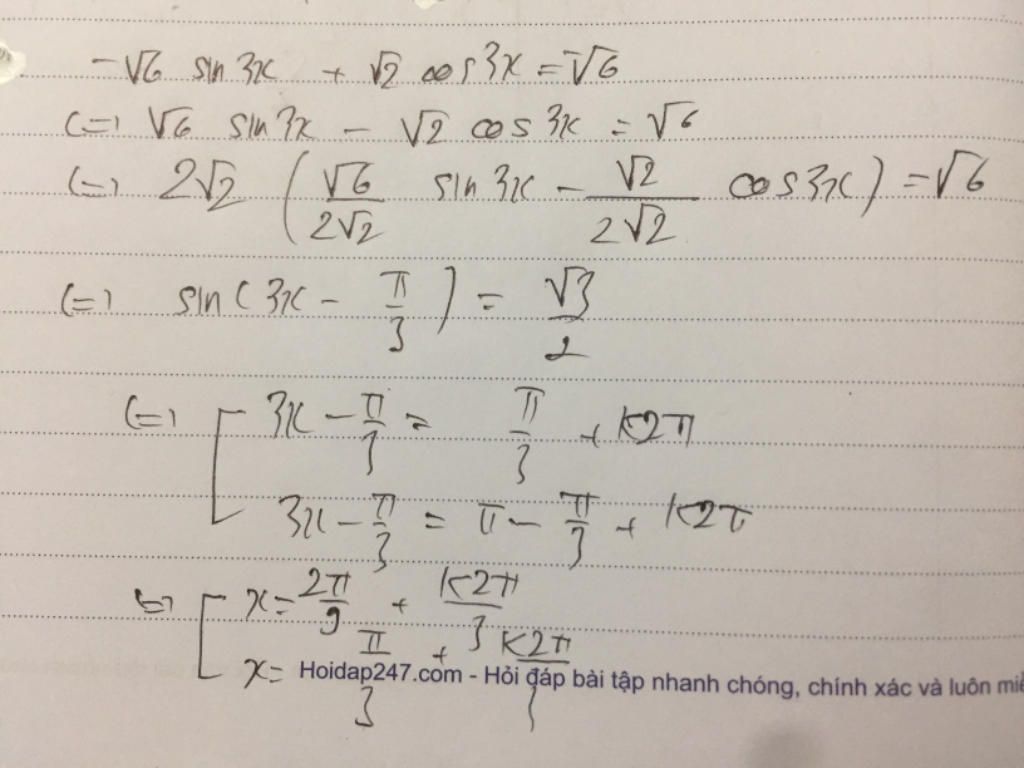 -√6 sin 3x + √2 cos 3x = -√6
(=) √6 sin 3x - √2 cos 3x = √6
(=) 2√2 (√6/2√2 sin 3x - √2/2√2 cos 3x) = √6
(=) sin(3x - π/3) = √3/2
(=) [ 3x - π/3 = π/3 + k2π
3x - π/3 = π - π/3 + k2π
(=) [ x = 2π/9 + k2π/3
x = π/3 + k2π/3
Hoidap247.com - Hỏi đáp bài tập nhanh chóng, chính xác và luôn miễ